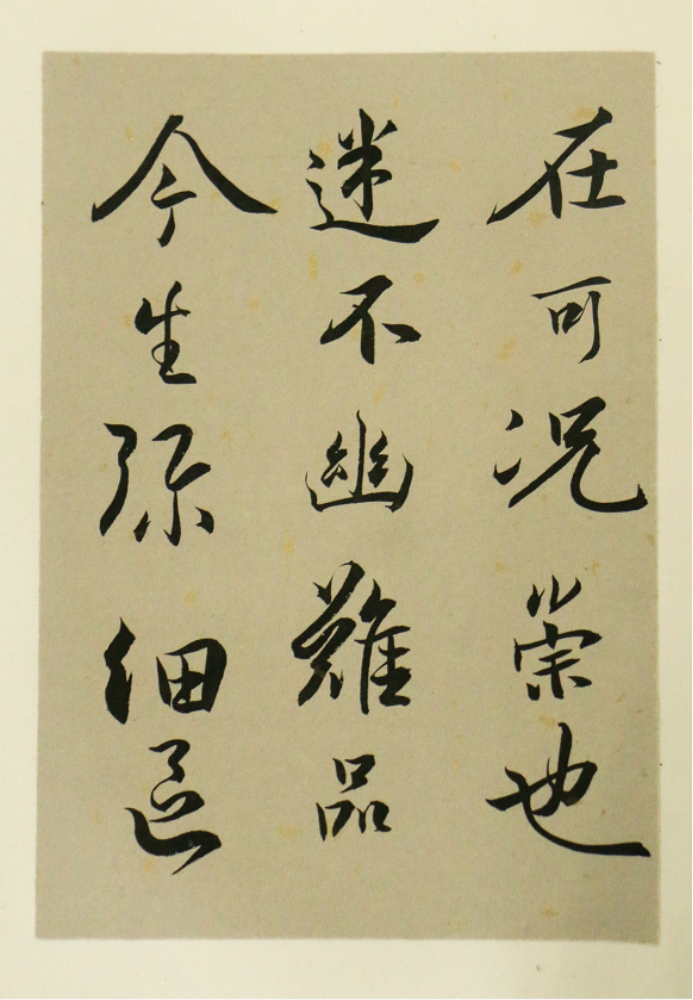 在可况崇也
迷不幽難品
今生弥細